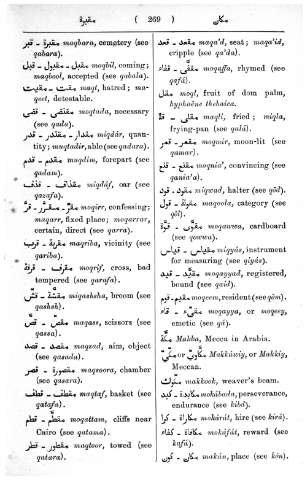 مقبرة ( 269 ) مكان
مقبرة - قبر maqbara, cemetery (see
qabara).
مقبل - مقبول - قبل moqbil, coming;
maqbool, accepted (see qabala).
مقت - مقيت maqt, hatred; ma-
qeet, detestable.
مقتضى - قضى moqtada, necessary
(see qada).
مقدار - مقتدر - قدر miqdâr, quan-
tity; muqtadir, able (see qadara).
مقدم - قدم moqdim, forepart (see
qadam).
مقذاف - قذف miqdâf, oar (see
qazafa).
مقرّ - مقرّر - قرّ moqirr, confessing;
maqarr, fixed place; moqarrar,
certain, direct (see qarra).
مقربة - قرب maqriba, vicinity (see
qariba).
مقرف - قرف moqrif, cross, bad
tempered (see qarafa).
مقشّة - قشّ miqashsha, broom (see
qashsh).
مقصّ - قصّ maqass, scissors (see
qassa).
مقصد - قصد maqsad, aim, object
(see qasada).
مقصورة - قصر maqsoora, chamber
(see qasara).
مقطف - قطف maqtaf, basket (see
qatafa).
مقطم - قطم moqattam, cliffs near
Cairo (see qatama).
مقطور - قطر maqtoor, towed (see
qatara).
مقعد - قعد maqa'd, seat; maqa'id,
cripple (see qa'da).
مقفى - قفاء moqaffa, rhymed (see
qafâ).
مقل moql, fruit of dom palm,
hyphaëne thebaica.
مقلي - قلى maqli, fried; miqla,
frying-pan (see qalâ).
مقمر - قمر moqmir, moon-lit (see
qamar).
مقنع - قنع moqnia', convincing (see
qania'a).
مقود - قود miqwad, halter (see qôd).
مقولة - قول maqoola, category (see
qôl).
مقوى - قوّة moqawwa, cardboard
(see qowwa).
مقياس - قياس miqyâs, instrument
for measuring (see qiyâs).
مقيد - قيد moqayyad, registered,
bound (see qaid).
مقيم - قيم moqeem, resident (see qôm).
مقيء - قاء moqayya, or moqeey,
emetic (see qâ).
مكة Makka, Mecca in Arabia.
مكّاوي or مكّي Makkâwiy, or Makkiy,
Meccan.
مكّوك makkook, weaver's beam.
مكابدة - كبد mokâbada, perseverance,
endurance (see kibd).
مكاراة - كرا mokârât, hire (see kirâ).
مكافاة - كفاء mokâfât, reward (see
kafâ).
مكان - كون makân, place (see kôn).